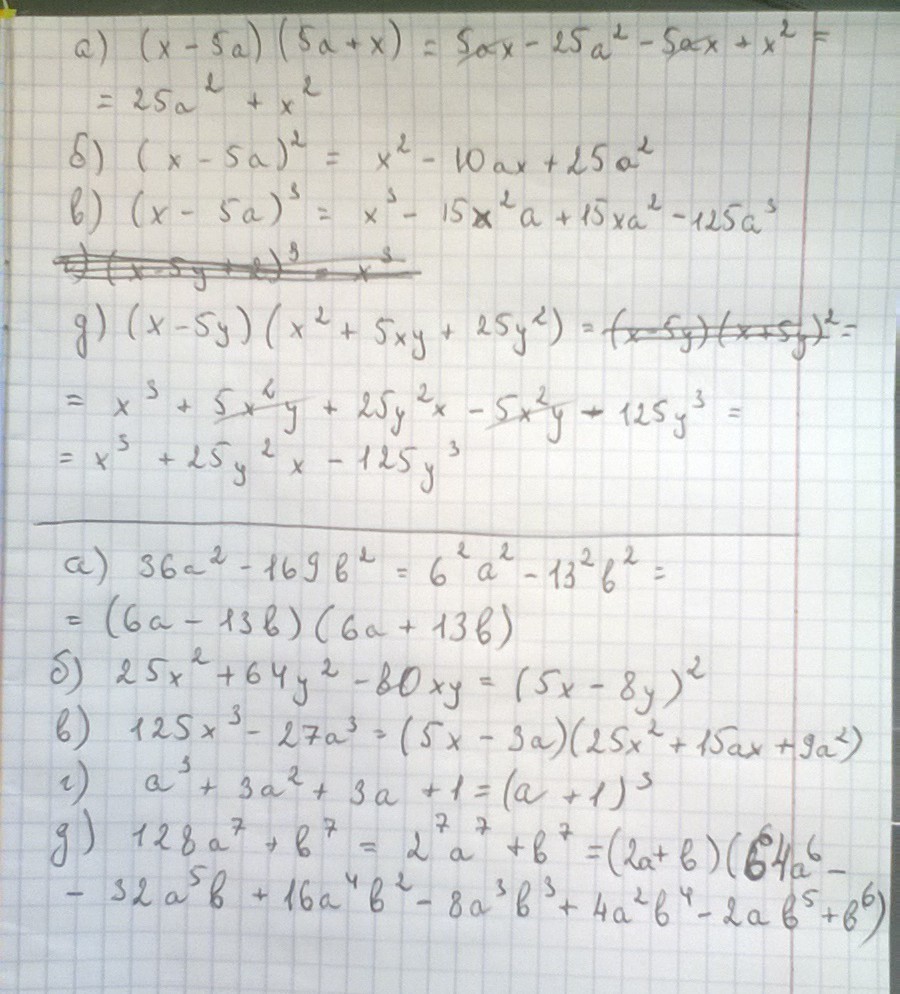 а) (x − 5a)(5a + x) = 5ax − 25a² − 5ax + x² =
= 25a² + x²
б) (x − 5a)² = x² − 10ax + 25a²
в) (x − 5a)³ = x³ − 15x²a + 15xa² − 125a³
г) (x − 5y + 2)³ = x³
д) (x − 5y)(x² + 5xy + 25y²) = (x − 5y)(x + 5y)² =
= x³ + 5x²y + 25y²x − 5x²y − 125y³ =
= x³ + 25y²x − 125y³
а) 36a² − 169b² = 6²a² − 13²b² =
= (6a − 13b)(6a + 13b)
б) 25x² + 64y² − 80xy = (5x − 8y)²
в) 125x³ − 27a³ = (5x − 3a)(25x² + 15ax + 9a²)
г) a³ + 3a² + 3a + 1 = (a + 1)³
д) 128a⁷ + b⁷ = 2⁷a⁷ + b⁷ = (2a + b)(64a⁶ −
− 32a⁵b + 16a⁴b² − 8a³b³ + 4a²b⁴ − 2ab⁵ + b⁶)